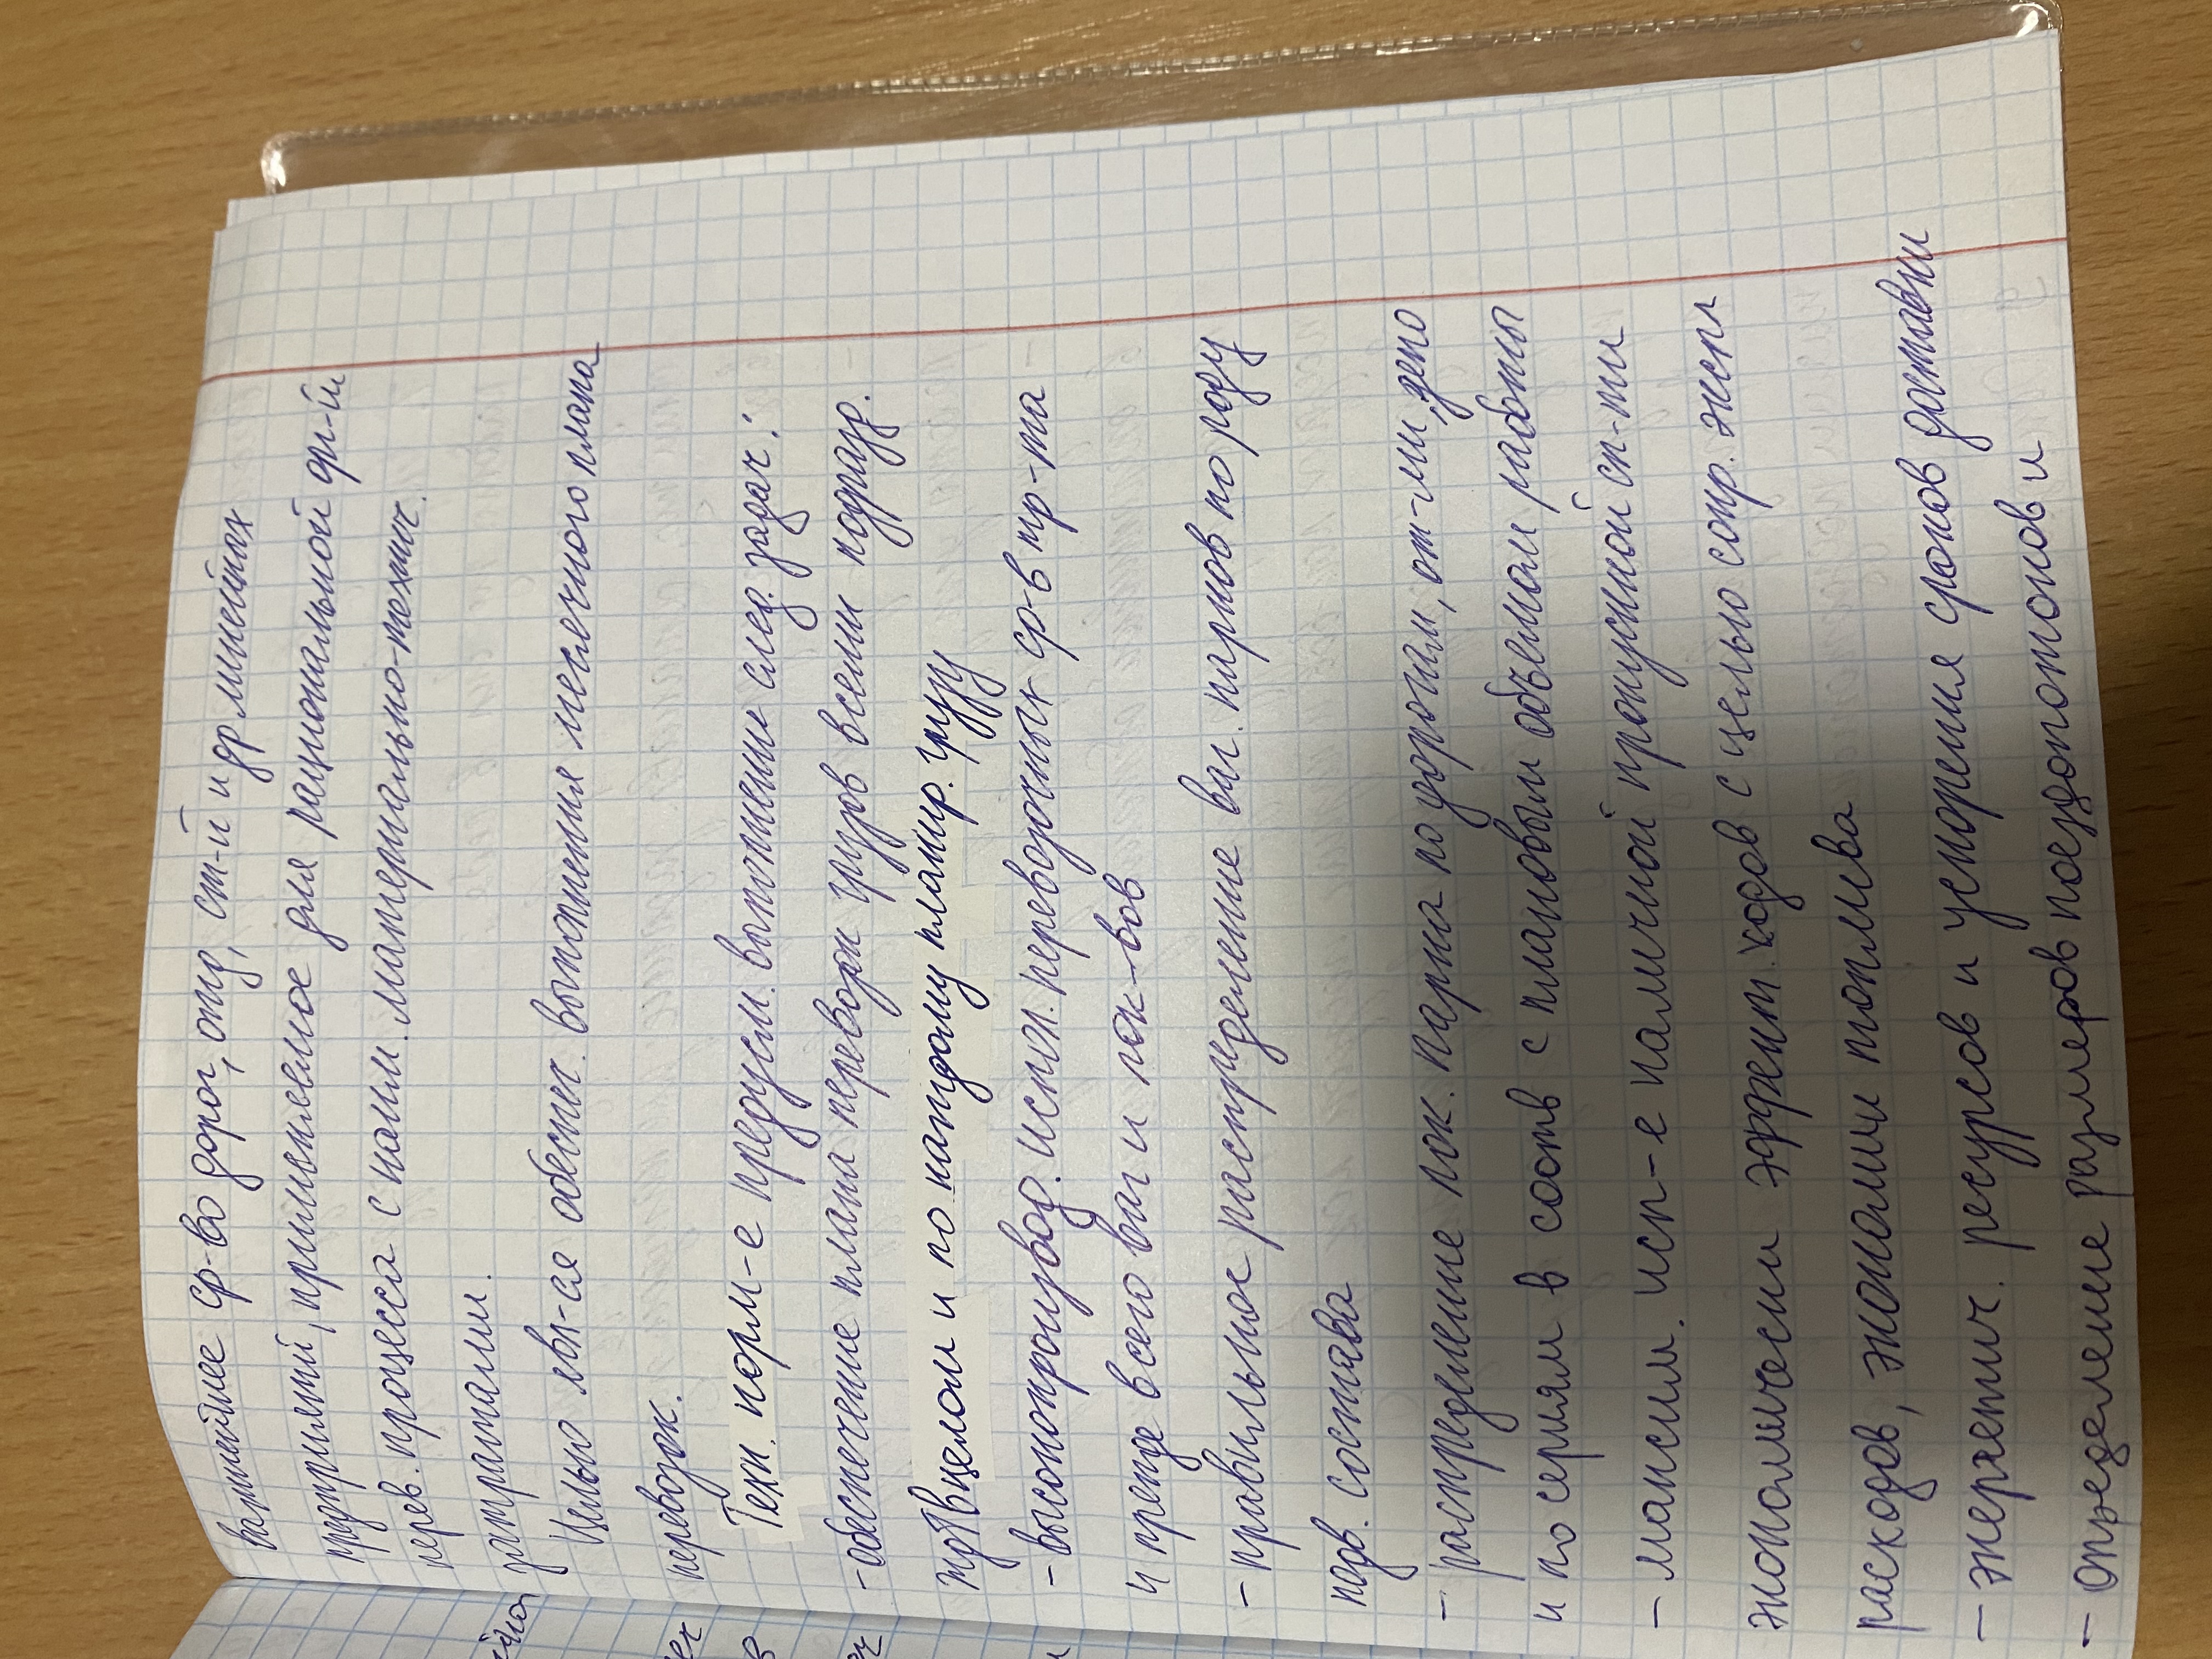 важнейшее ср-во дорог, отд, ст-й и др линейных
предприятий, применяемое для рациональной ф-й
перев. процесса с наим. материально-технич.
затратами.
Целью явл-ся обеспеч. выполнения месячного плана
перевозок.
Техн. норм-е предусм. выполнение след. задач:
- обеспечение плана перевозок грузов всеми подразд.
жд в целом и по каждому планир. грузу
- высокопроизвод. испол. перевозочных ср-в тр-та
и прежде всего ваг и лок-вов
- правильное распределение ваг. парков по роду
подв. состава
- распределение лок. парка по дорогам, от-ми, депо
и по сериям в соотв с плановым объемом работы
- максим. исп-е наличной пропускной сп-ти
экономически эффект. ходов с целью сокр. экспл
расходов, экономии топлива
- энергетич. ресурсов и ускорения сроков доставки
- определение размеров поездопотоков и